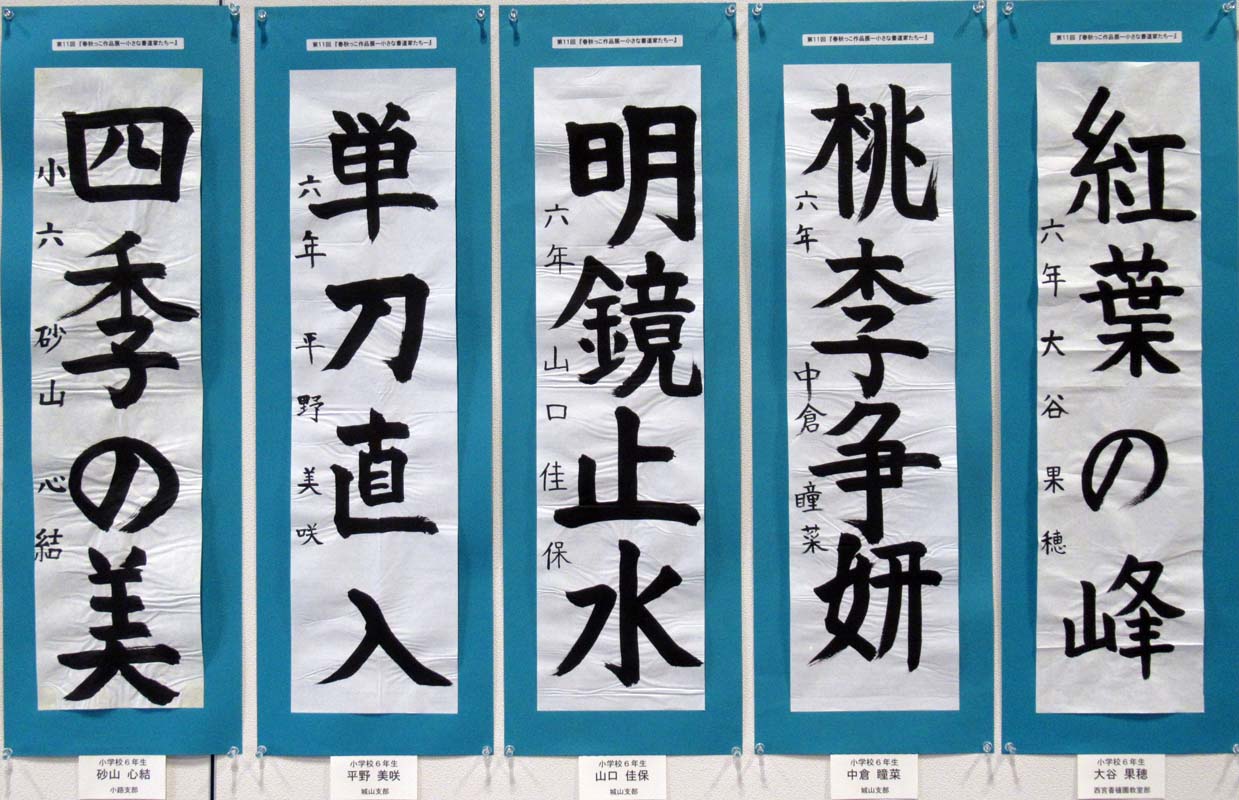 第11回『春秋っこ作品展ー小さな書道家たちー』
紅葉の峰
六年 大谷果穂
小学校6年生
大谷 果穂
西宮香櫨園教室部
第11回『春秋っこ作品展ー小さな書道家たちー』
桃李争妍
六年 中倉瞳菜
小学校6年生
中倉 瞳菜
城山支部
第11回『春秋っこ作品展ー小さな書道家たちー』
明鏡止水
六年 山口佳保
小学校6年生
山口 佳保
城山支部
第11回『春秋っこ作品展ー小さな書道家たちー』
単刀直入
六年 平野美咲
小学校6年生
平野 美咲
城山支部
第11回『春秋っこ作品展ー小さな書道家たちー』
四季の美
小六 砂山心結
小学校6年生
砂山 心結
小路支部